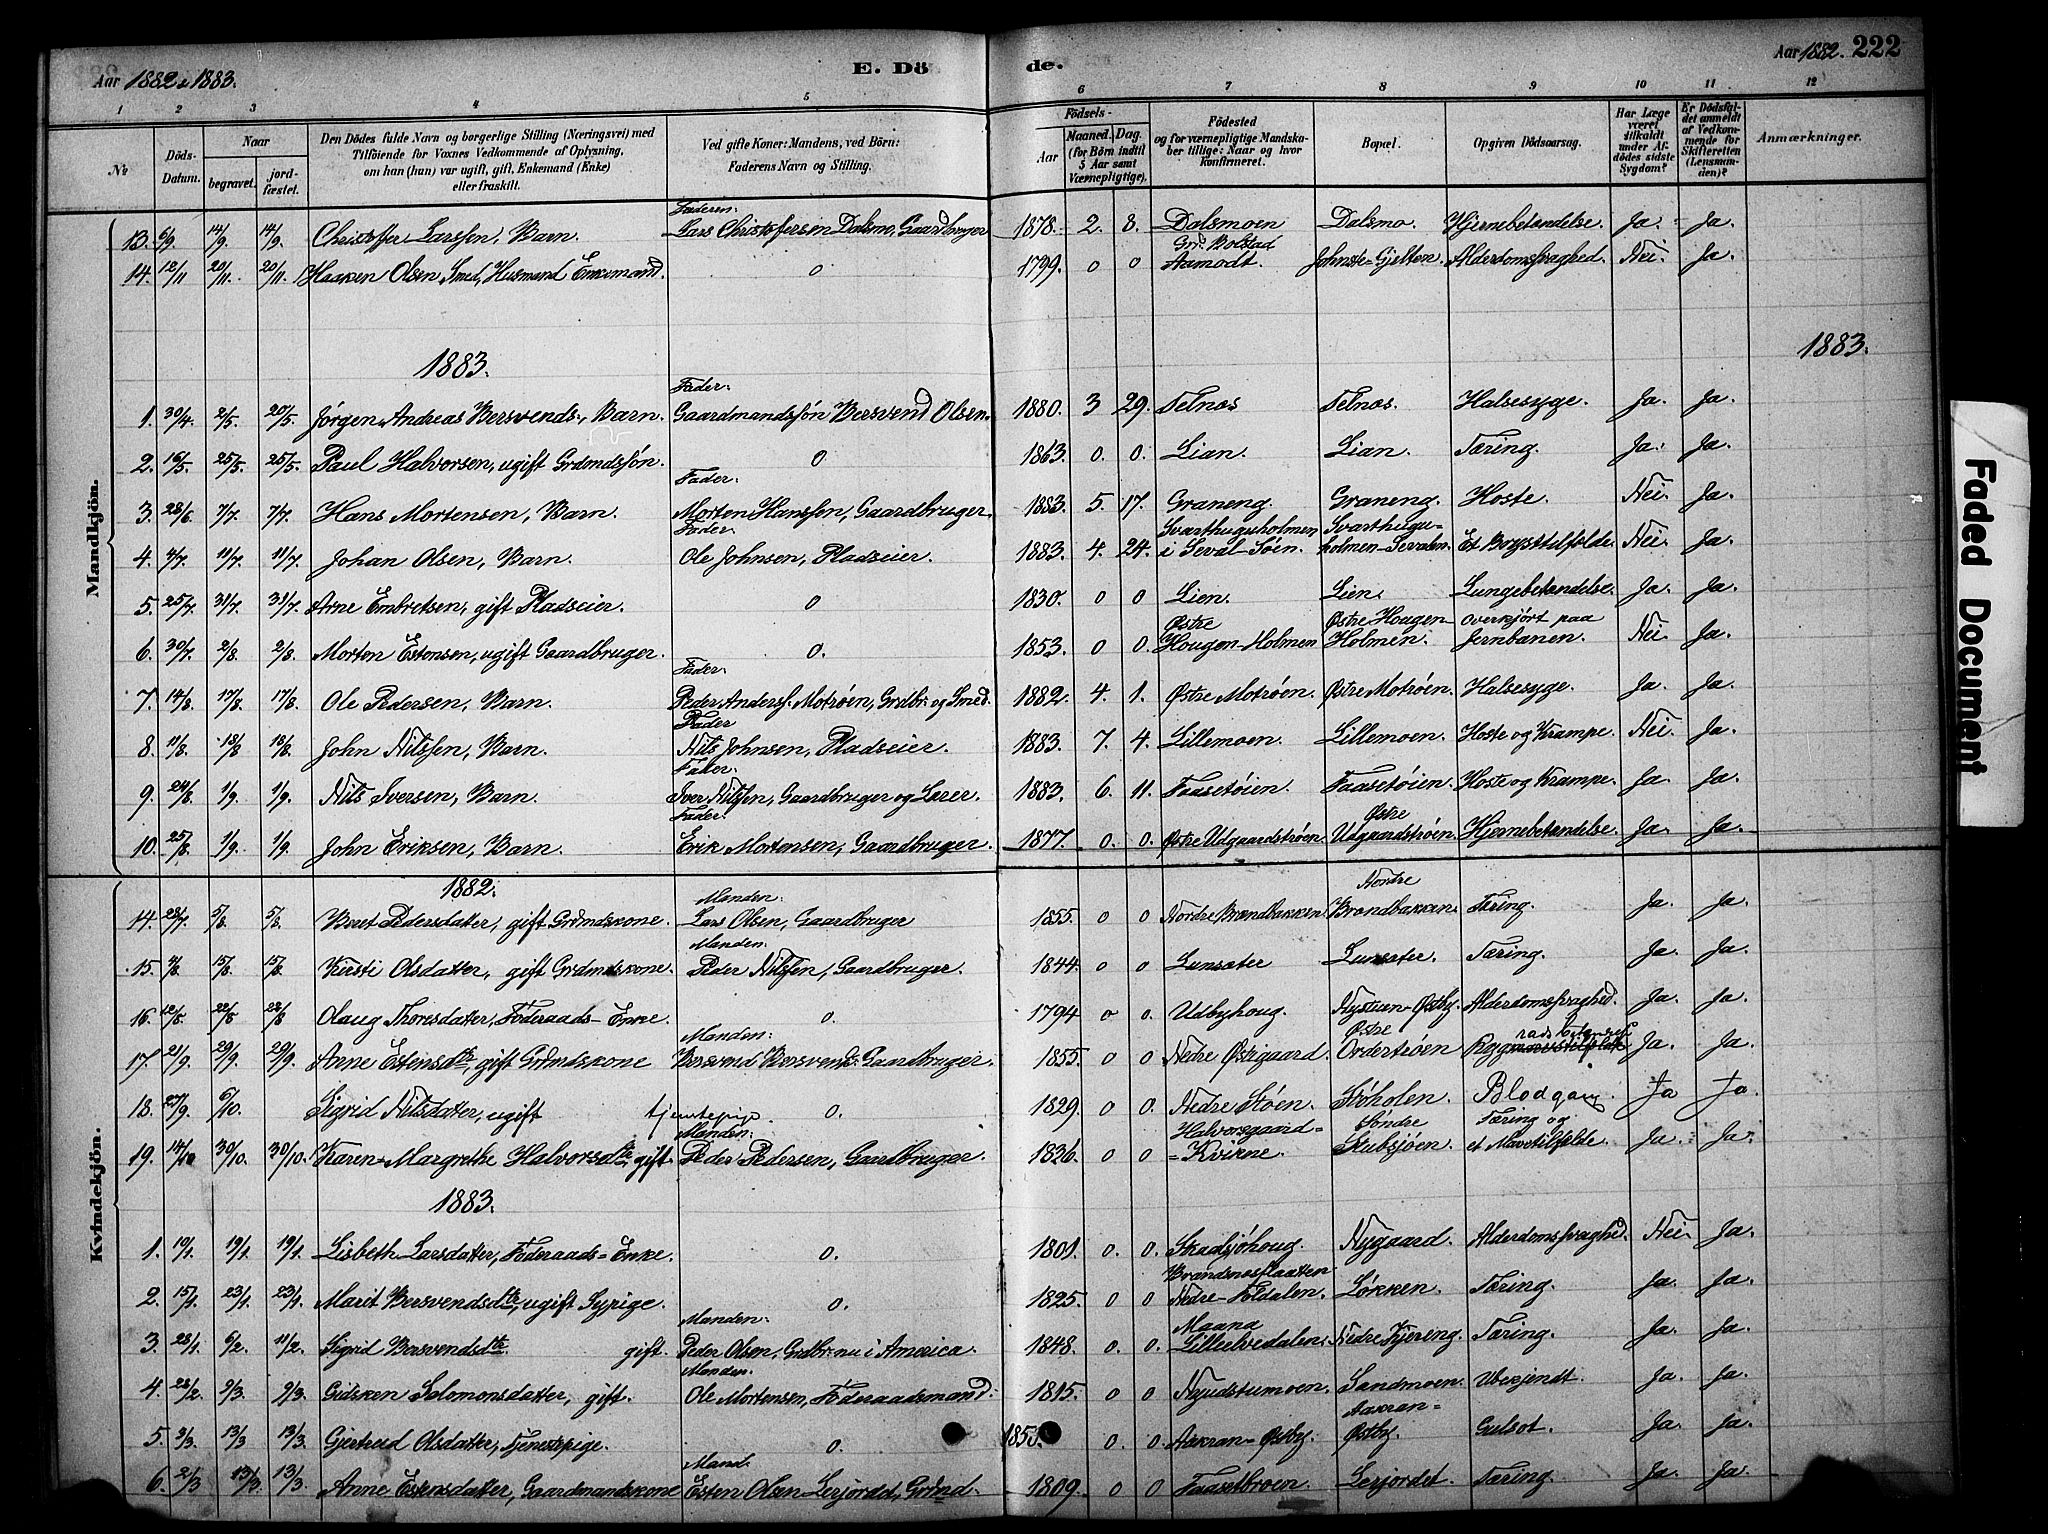 Aar 1882 & 1883.
E. Dö
de.
Aar 1882. 222
1 2 3 4 5 6 7 8 9 10 11 12
No
Döds-Datum.
Naar
begravet.
jord-fæstet.
Den Dödes fulde Navn og borgerlige Stilling (Næringsvei) med
Tilföiende for Voxnes Vedkommende af Oplysning,
om han (hun) var ugift, gift, Enkemand (Enke)
eller fraskilt.
Ved gifte Koner: Mandens, ved Börn:
Faderens Navn og Stilling.
Födsels-
Aar
Maaned. Dag.
(for Börn indtil
5 Aar samt
Værnepligtige).
Födested
og for værnepligtige Mandska-
ber tillige: Naar og hvor
Konfirmeret.
Bopæl.
Opgiven Dödsaarsag.
Har Læge
været
tilkaldt
under Af-
dödes sidste
Sygdom?
Er Dödsfal-
det anmeldt
af Vedkom-
mende for
Skifteretten
(Lensman-
den)?
Anmærkninger.
Mandkjön.
Faderen:
13. 6/9. 14/9. 14/9. Christoffer Larssen, Barn. Lars Christofersen Dalsmo, Gaardbruger 1878. 2. 8. Dalsmoen Dalsmo. Hjernebetændelse. Ja. Ja.
Grd. Bolstad
14. 12/11 20/11. 20/11. Haaken Olsen, Smed, Husmand Enkemand. 0 1799. 0 0 Aamodt. Johnste-Gjelten. Alderdomssvaghed. Nei. Ja.
1883. 1883.
Fader:
1. 30/4. 2/5. 20/5. Jørgen Andreas Bersvends., Barn. Gaardmandssön Bersvend Olsen. 1880. 3 29. Telnos Telnos. Halsesyge. Ja. Ja.
2. 16/5. 25/5. 25/5. Paul Halvorsen, ugift Grdmdssön. 0 1863. 0. 0. Lian. Lian. Tæring. Ja. Ja.
Fader.
3. 28/6. 7/7. 7/7. Hans Mortensen, Barn. Morten Hanssen, Gaardbruger. 1883. 5. 17. Graneng. Graneng. Hoste. Nei Ja.
Fader. Svarthuguholmen Svarthugu-
4. 4/7. 11/7. 11/7. Johan Olsen, Barn. Ole Johnsen, Pladseier. 1883. 4. 24. i Seval-Söen. holmen-Sevalen. Et Brysttilfælde. Nei. Ja.
5. 25/7. 31/7. 31/7. Arne Embretsen, gift Pladseier. 0 1830. 0 0 Lien. Lien. Lungebetændelse. Ja. Ja.
Østre Østre Hougen- overkjört paa
6. 30/7. 2/8. 2/8. Morten Estensen, ugift Gaardbruger. 0. 1853. 0 0. Hougen-Holmen Holmen. Jernbanen. Nei. Ja.
Fader.
7. 14/8. 17/8. 17/8. Ole Pedersen, Barn. Peder Anderss. Moträen, Grdbr. og Smed. 1882. 4. 1. Østre Moträen. Østre Moträen. Halsesyge. Ja. Ja.
Fader
8. 11/8. 18/8 18/8. John Nilssen, Barn. Nils Johnsen, Pladseier. 1883. 7. 4. Lillemoen. Lillemoen. Hoste og Krampe. Nei. Ja.
Fader.
9. 24/8. 1/9. 1/9. Nils Iversen, Barn. Iver Nilssen, Gaardbruger og Lærer. 1883. 6. 11. Faasetöien. Faasetöien. Hoste og Krampe. Ja. Ja.
Fader. Østre
10. 25/8. 1/9. 1/9. John Eriksen, Barn. Erik Mortensen, Gaardbruger. 1877. 0. 0. Østre Udgaardströen. Udgaardströen. Hjernebetændelse. Ja. Ja.
Kvindekjön.
1882. Manden. Nordre
14. 28/7. 5/8. 5/8. Beret Pedersdatter, gift Grdmdskone. Lars Olsen, Gaardbruger 1855. 0 0 Nordre Brandbakken. Brandbakken. Tæring. Ja. Ja.
Manden.
15. 9/8. 15/8. 15/8. Kirsti Olsdatter, gift Grdmdskone. Peder Nilssen, Gaardbruger. 1844. 0 0 Lunsæter Lunsæter. Tæring. Ja. Ja.
16. 12/8. 22/8 28/8 Olaug Thoresdatter, Föderaads-Enke. 0. 1794 0 0. Udbyhoug. Nystuen-Østby. Alderdomssvaghed. Ja. Ja.
Manden. Østre
17. 21/9. 29/9. 29/9. Anne Estensdtr., gift Grdmdskone Bersvend Bersvends. Gaardbruger. 1855. 0 0. Nedre Østigaard. Ordertröen Ryg Ja. Ja.
18. 27/9. 6/10. Sigrid Nilsdatter, ugift tjenstepige 0. 1829. 0 0. Nedre Støen. Støholen. Blodgang. Ja Ja.
Manden. Halvorsgaard- Söndre Tæring og
19. 14/10 30/10. 30/10. Karen-Margrethe Halvorsdtr. gift. Peder Pedersen, Gaardbruger. 1836. 0 0 -Kvikne. Stubsjöen. et Mavetilfælde. Ja. Ja.
1883.
1. 19/1. 19/1. 19/1. Lisbeth Larsdatter, Föderaads-Enke. 0. 1801. 0. 0. Skadsjöhoug. Nygaard. Alderdomssvaghed. Nei. Ja.
Brandsnesplaatten
2. 15/1. 23/1. 23/1. Marit Bersvendsdtr., ugift Sypige. 0. 1825. 0 0. Nedre-Foldalen. Løkken. Tæring. Ja. Ja.
Manden. Maana
3. 28/1. 6/2. 11/2. Sigrid Bersvendsdtr. gift. Peder Olsen, Grdbr. nu i America. 1848. 0. 0. Lilleelvedalen. Nedre Kjereng. Tæring. Ja. Ja.
Manden.
4. 28/2. 9/3. 9/3. Gidsken Salomonsdatter, gift. Ole Mortensen, Föderaadsmand. 1815. 0 0 Nyudstumoen. Sandmoen. Ubekjendt. Ja. Ja.
Aakran-
5. 3/3. 13/3 13/3. Gjertrud Olsdatter, Tjenestepige. 0. 1853. 0 0. Aakran-Østby. Østby. Gulsot. Ja. Ja.
Mand.
6. 2/3 13/3. 13/3. Anne Estensdatter, Gaardmandskone Esten Olsen Lerjordet, Grdmd. 1809. 0 0 Faasetbroen. Lerjordet. Tæring. Ja. Ja.
Faded Document